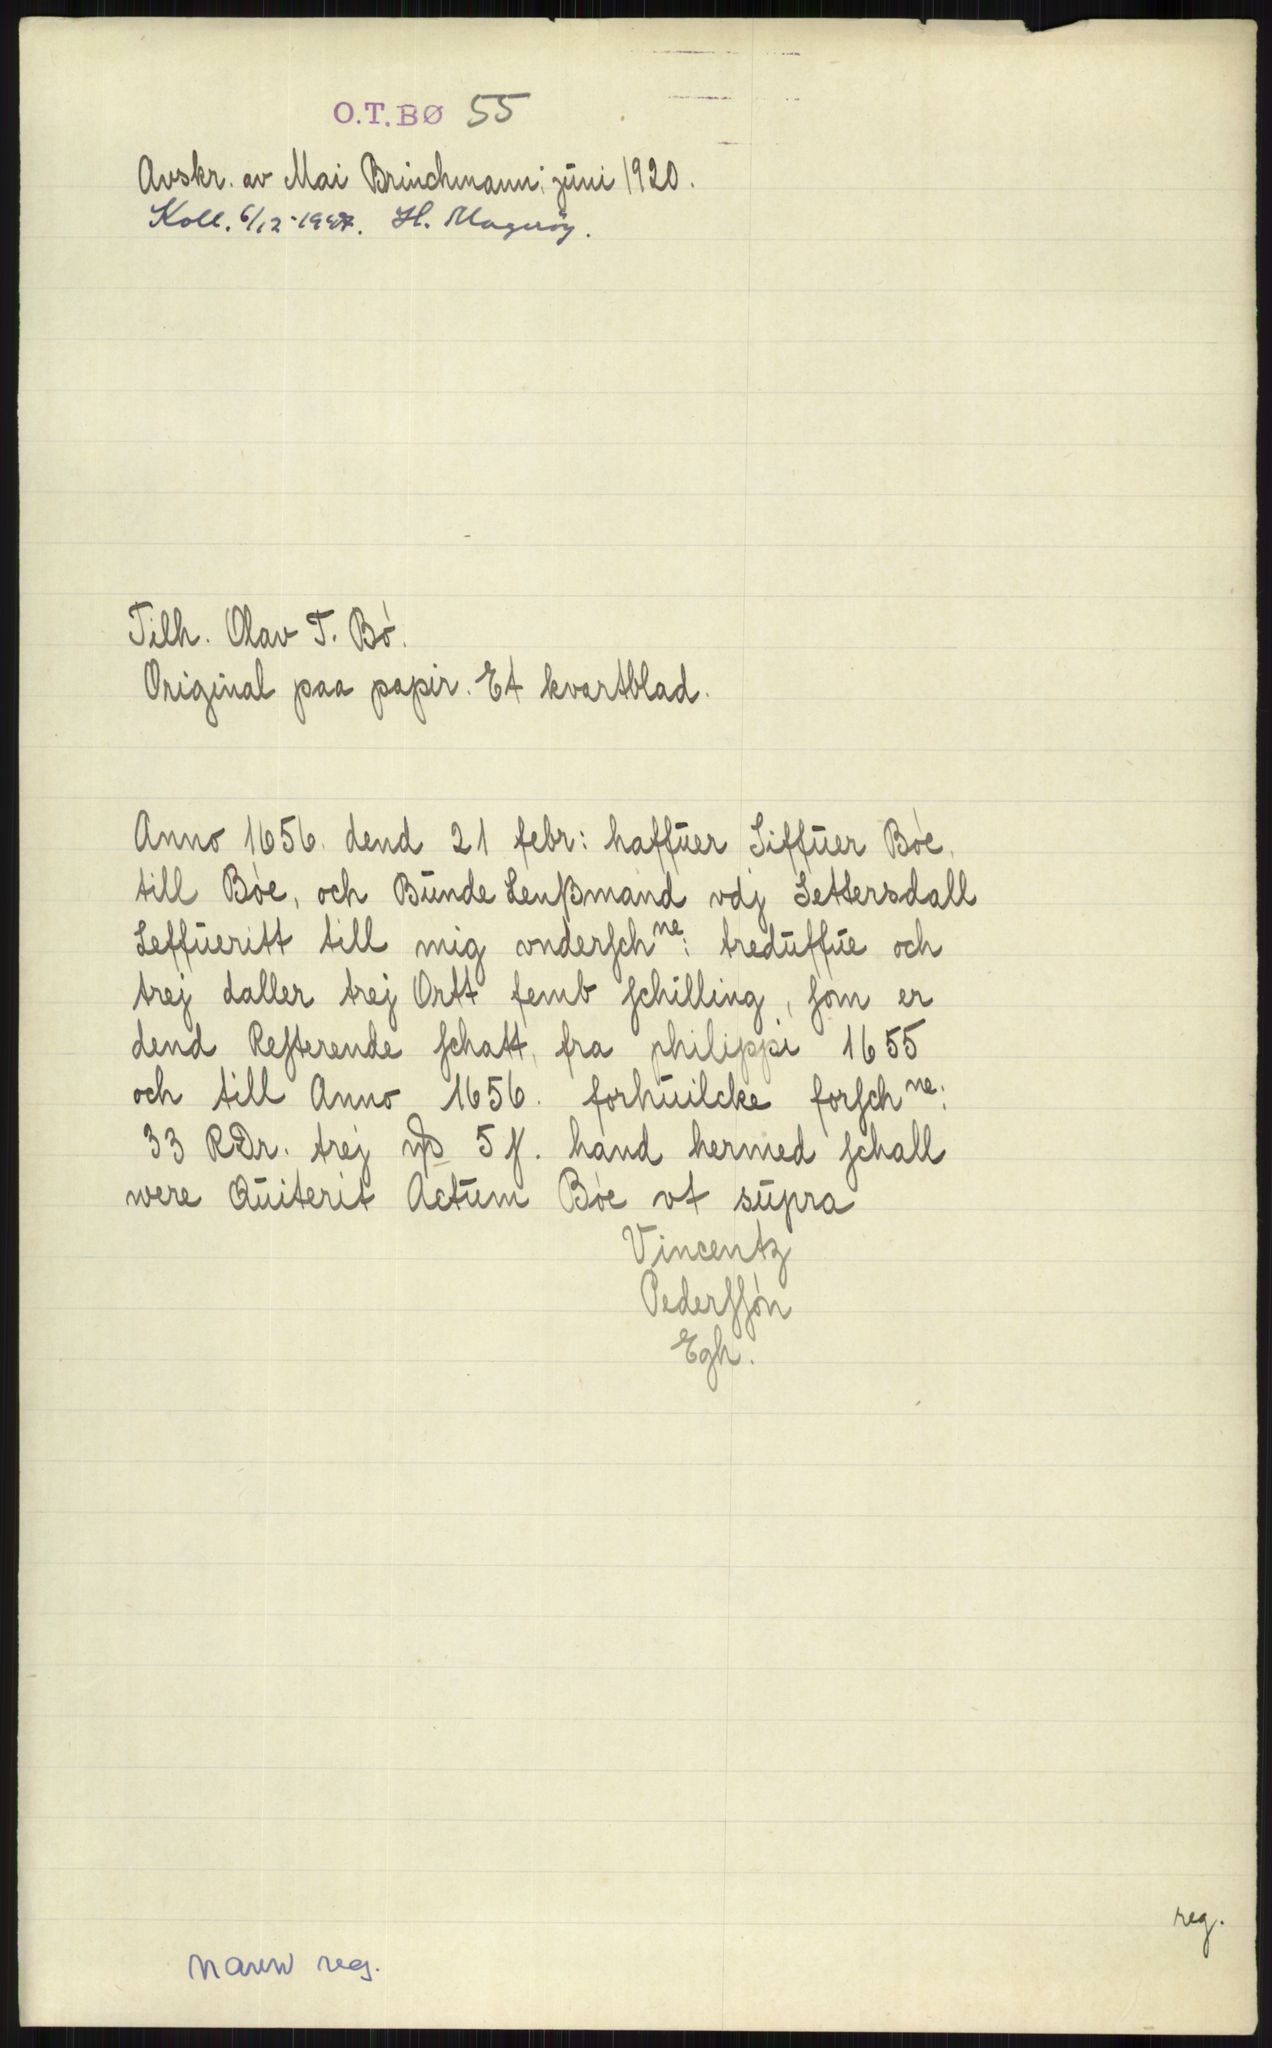 O.T.BØ 55
Avskr. av Mai Brinchmann; juni 1920.
Koll. 6/12-1947. H. Magerøy.
Tilh. Olav T. Bø.
Original paa papir. Et kvartblad.
Anno 1656. dend 21 febr: haffuer Siffuer Bøe,
till Bøe, och Bunde Lenßmand vdj Settersdall
Leffueritt till mig vnderschne: treduffue och
trej daller trej Ortt femb schilling, som er
dend Resterende schatt, fra philippi 1655
och till Anno 1656. forhuilcke forschne:
33 RDr. trej 5 ſ. hand hermed schall
were Quiterit Actum Bøe vt supra
Vincentz
Pederssøn
Egh.
reg.
navn reg.